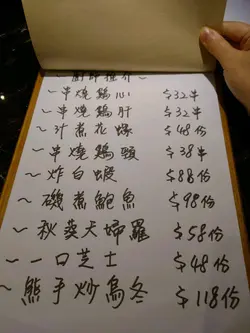 ~ 廚師推介 ~
~ 串燒鷄心 $32串
~ 串燒鷄肝 $32串
~ 汁煮花螺 $48份
~ 串燒鷄 $38串
~ 炸白蝦 $88份
~ 磯煮鮑魚 $98份
~ 秋葵天婦羅 $58份
~ 一口芝士 $48份
~ 熊手炒烏冬 $118份